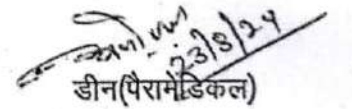 23/8/24
डीन(पैरामेडिकल)